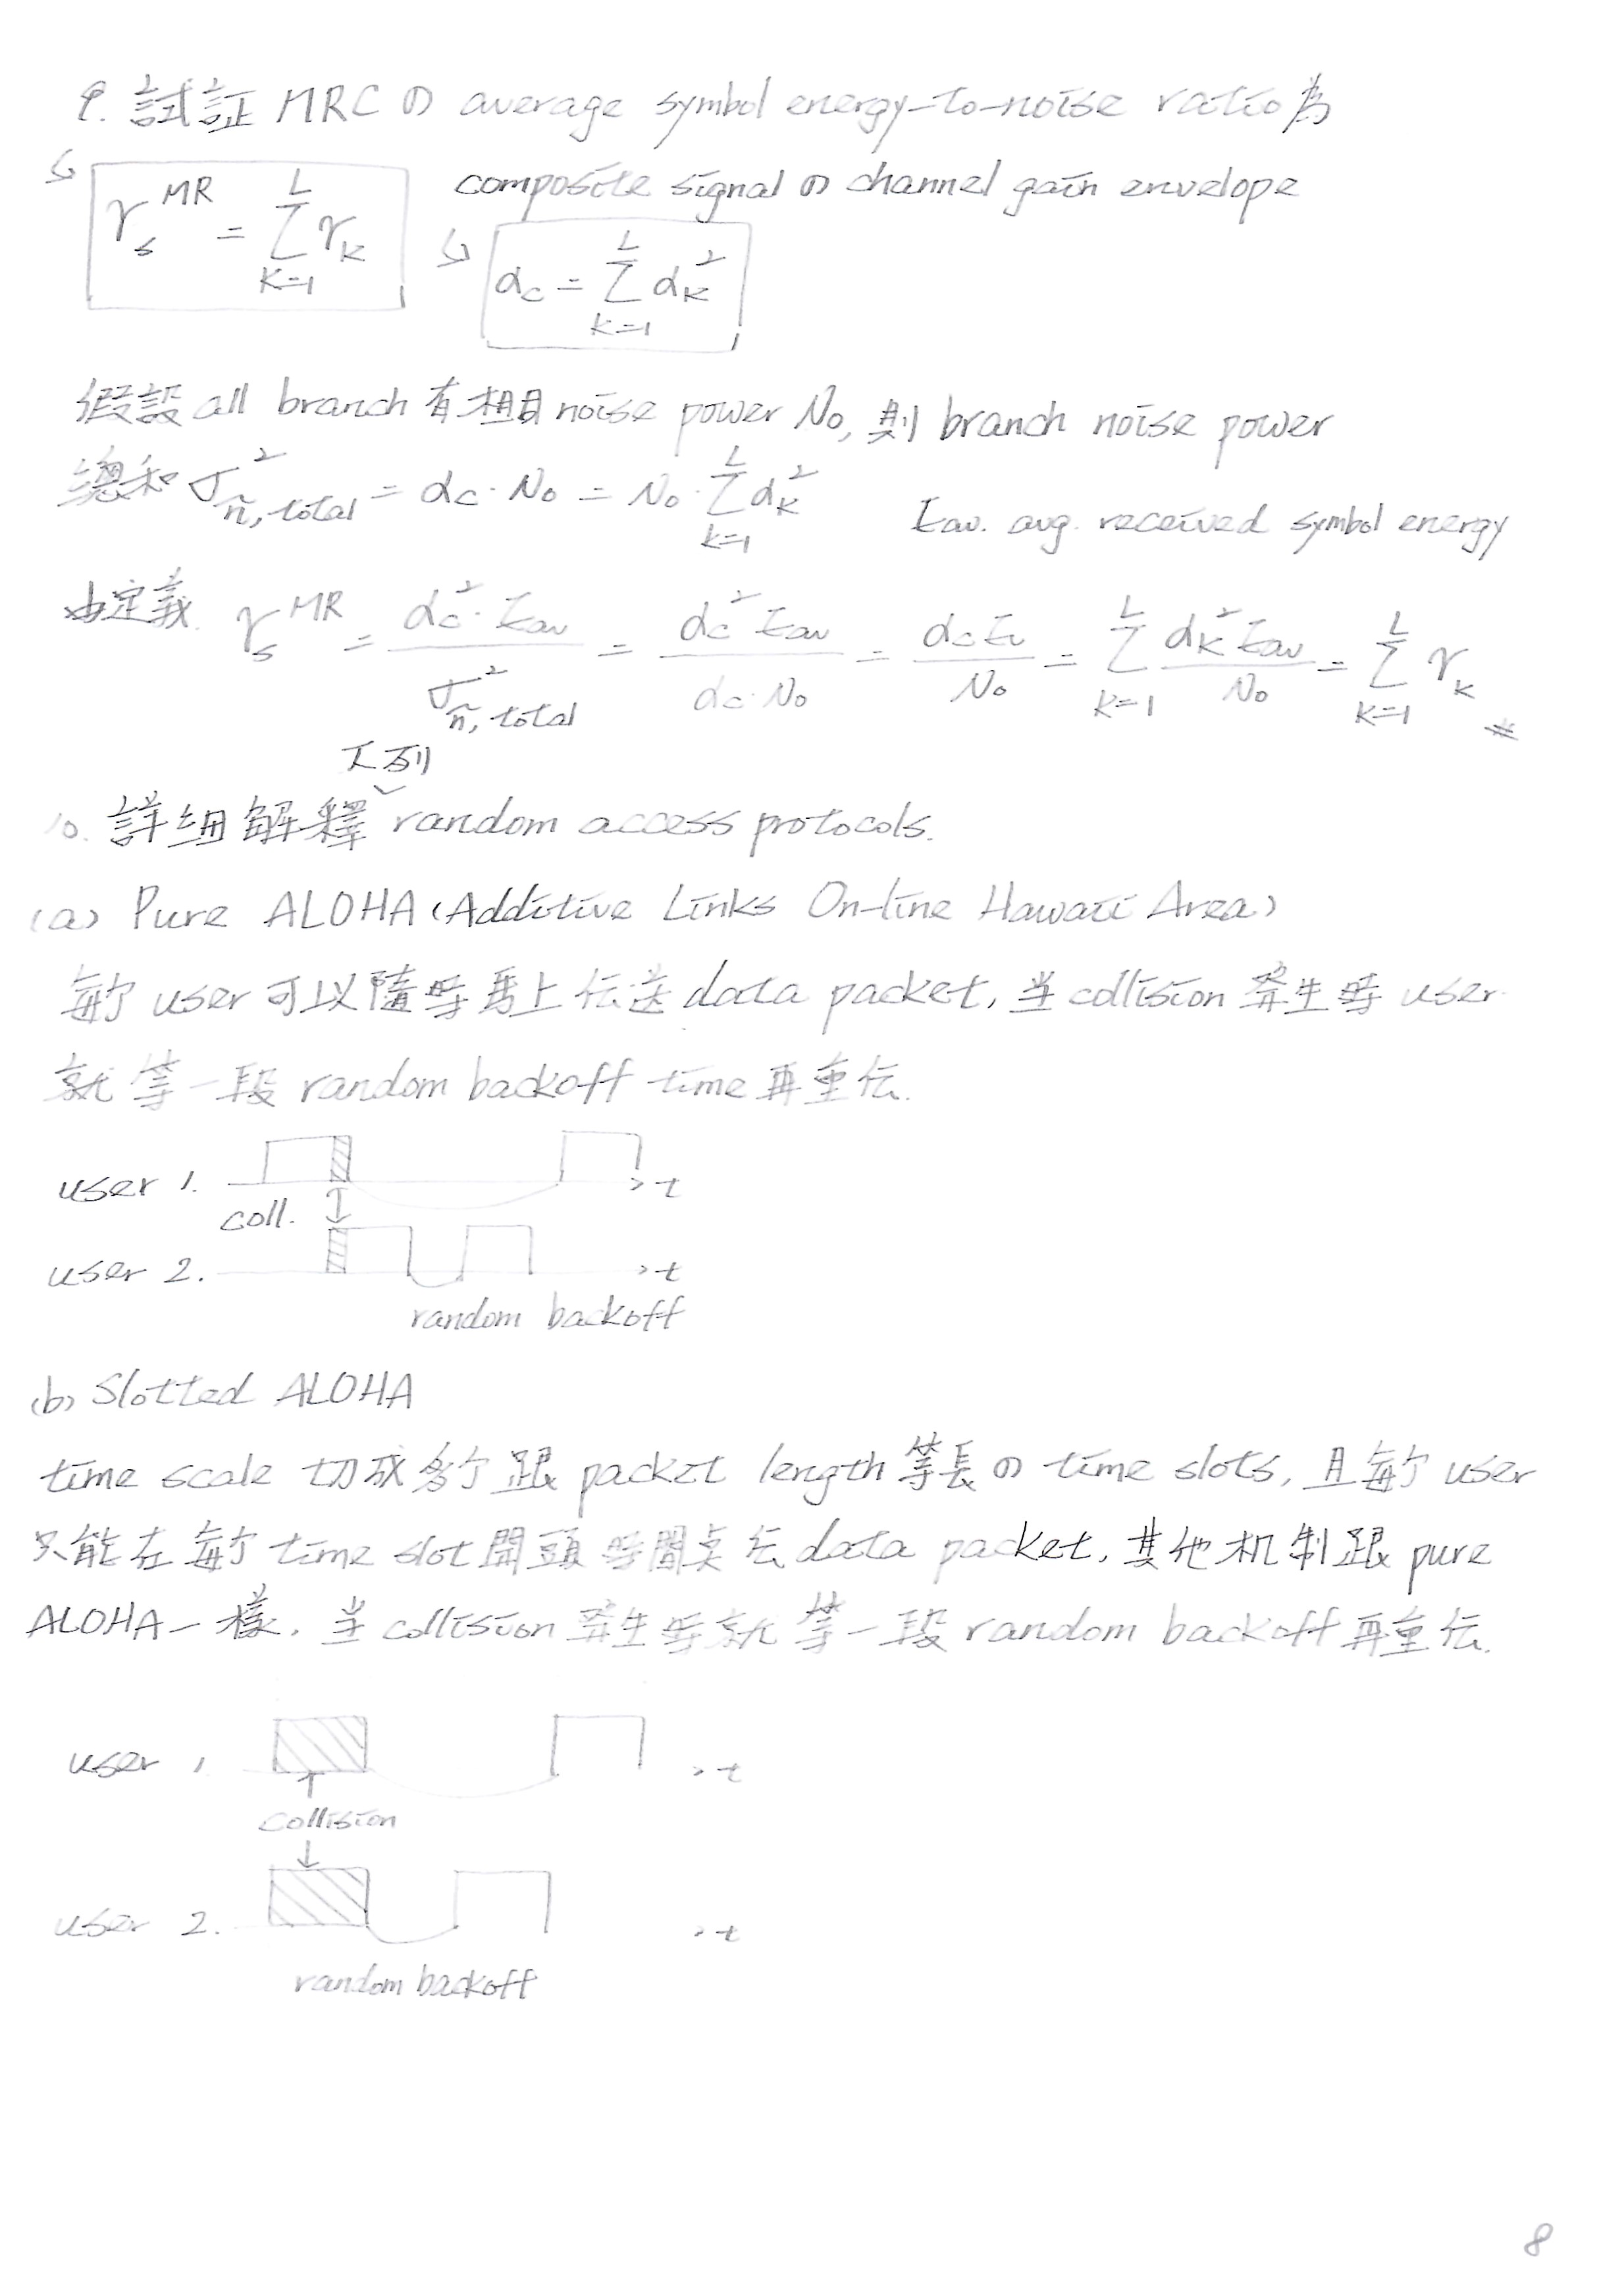 9. 試証 MRC の average symbol energy-to-noise ratio 為
↳ γ_s^MR = Σ_{k=1}^{L} γ_k
composite signal の channel gain envelope
↳ α_c = Σ_{k=1}^{L} α_k^2
假設 all branch 有相同 noise power N_0, 則 branch noise power
總和 σ^2_{ñ, total} = α_c · N_0 = N_0 · Σ_{k=1}^{L} α_k^2
E_av. avg. received symbol energy
由定義. γ_s^MR = α_c^2 · E_av / σ^2_{ñ, total} = α_c^2 E_av / α_c · N_0 = α_c E_v / N_0 = Σ_{k=1}^{L} α_k^2 E_av / N_0 = Σ_{k=1}^{L} γ_k #
下列
10. 詳細解釋 random access protocols.
(a) Pure ALOHA (Additive Links On-line Hawaii Area)
每个 user 可以隨時馬上伝送 data packet, 当 collision 発生時 user
就等一段 random backoff time 再重伝.
user 1. → t
coll. ↕
user 2. → t
random backoff
(b) Slotted ALOHA
time scale 切成多个跟 packet length 等長の time slots, 且每个 user
只能在每个 time slot 開頭時間点伝 data packet, 其他机制跟 pure
ALOHA 一樣. 当 collision 発生時就等一段 random backoff 再重伝.
user 1 → t
↑
collision
↓
user 2. → t
random backoff
8